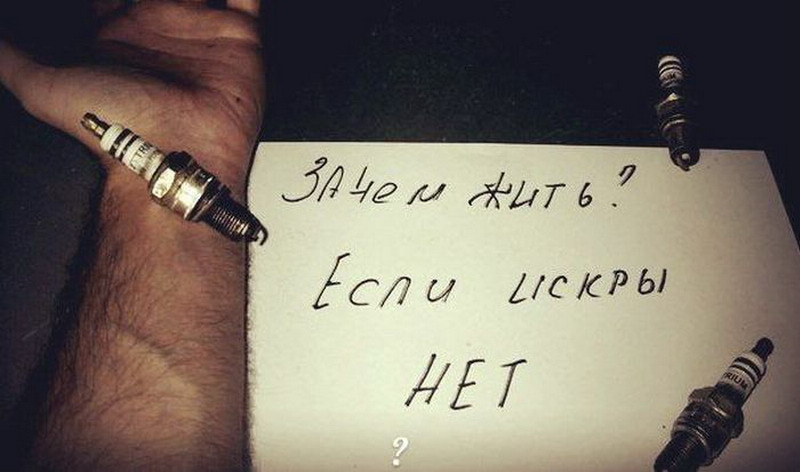 ЗАЧЕМ ЖИТЬ?
Если искры
НЕТ
?
TRIUM